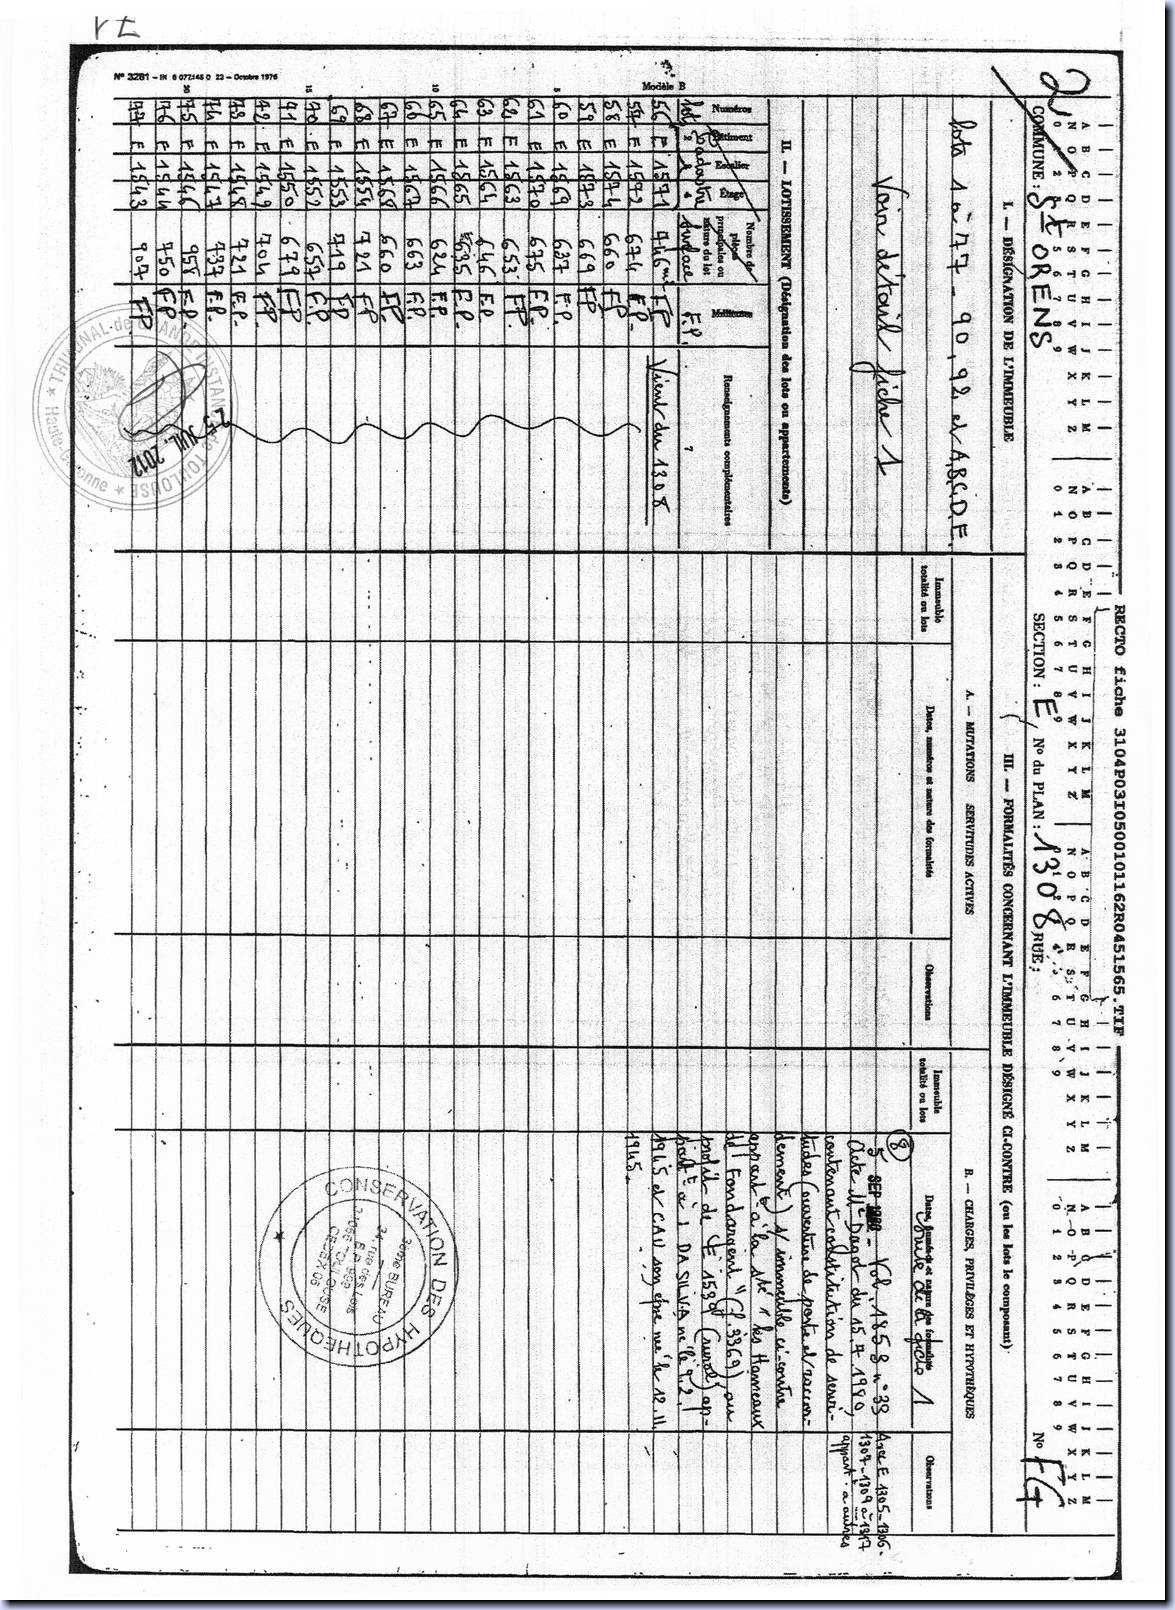 RECTO fiche 3104P03I0500101162R0451565.TIF
A B C D E F G H I J K L M
N O P Q R S T U V W X Y Z
0 1 2 3 4 5 6 7 8 9
2
COMMUNE : St ORENS
SECTION : E
N° du PLAN : 1308
RUE :
N° FG
I. — DÉSIGNATION DE L'IMMEUBLE
lots 1 à 77 - 90, 92 et A,B,C,D,E.
Voir détail fiche 1
II. — LOTISSEMENT (Désignation des lots ou appartements)
Numéros
Bâtiment
Escalier
Étage
Nombre de pièces principales ou nature du lot
Millièmes
Renseignements complémentaires
lot cadastre surface F.P. 7
56 E 1571 746 m² FP Vient du 1308
57 E 1572 674 FP.
58 E 1574 660 FP
59 E 1573 669 FP
60 E 1569 637 F.P.
61 E 1570 675 F.P.
62 E 1563 653 FP.
63 E 1564 646 F.P
64 E 1565 635 F.P.
65 E 1566 624 F.P.
66 E 1567 663 F.P.
67 E 1568 660 F.P.
68 E 1554 721 FP
69 E 1553 719 FP
70 E 1552 657 F.P.
71 E 1550 679 FP
72 E 1549 704 F.P.
73 E 1548 721 F.P.
74 E 1547 737 F.P.
75 E 1546 958 F.P.
76 E 1544 750 F.P.
77 E 1543 907 FP
III. — FORMALITÉS CONCERNANT L'IMMEUBLE DÉSIGNÉ CI-CONTRE (ou les lots le composant)
A. — MUTATIONS SERVITUDES ACTIVES
Immeuble totalité ou lots
Dates, numéros et nature des formalités
Observations
B. — CHARGES, PRIVILÈGES ET HYPOTHÈQUES
Immeuble totalité ou lots
Dates, numéros et nature des formalités
Observations
Suite de la fiche 1
8
5 SEP 1980 - Vol. 1858 n° 33
Acte Me Dagot du 15.7.1980,
contenant constitution de servi-
tudes (ouverture de porte et raccor-
dement) s/ immeuble ci-contre
appart t à la sté "les Hameaux
de Fondargent" (f. 3369), au
profit de E 1539 (rural) ap-
part t à 1 DA SILVA né le 9.2.
1945 et CAU son épse née le 12.11.
1945.
Avec E 1305-1306-
1307-1309 à 1317
appart. t à autres
CONSERVATION DES HYPOTHEQUES
3ème BUREAU
34, rue des Lois
B.P. 839
31056 - TOULOUSE
CEDEX 06
TRIBUNAL de GRANDE INSTANCE de TOULOUSE
Haute-Garonne
25 JUIL. 2012
Modèle B
5
10
15
20
N° 3281 – IN 6 077145 0 23 – Octobre 1976